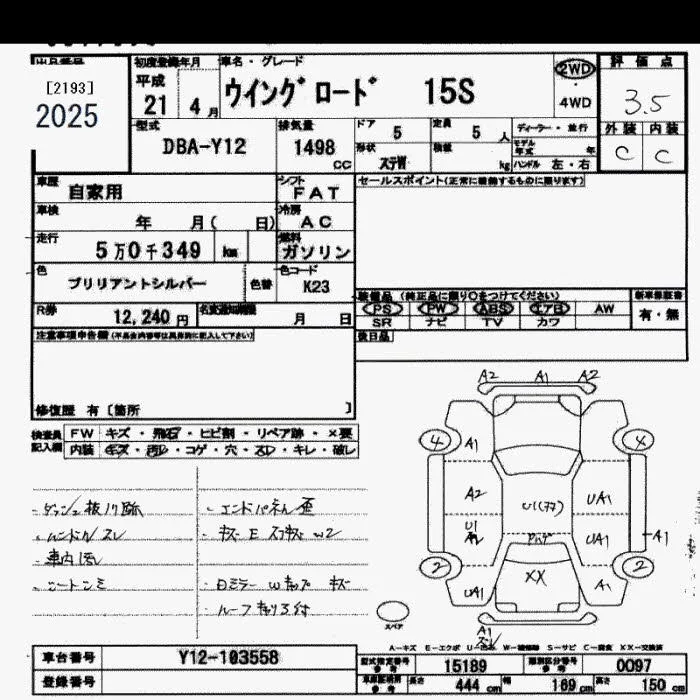 [2193]
2025
初度登録年月
車名・グレード
平成
21 4 月
ウイングロード 15S
2WD
・
4WD
評 価 点
3.5
外装 内装
C C
型式
DBA-Y12
排気量
1498
CC
ドア 5
定員 5 人
形状
積載 kg
ディーラー・並行
モデル
年式 年
ハンドル 左・右
車歴 自家用
シフト FAT
車検 年 月( 日)
冷房 AC
走行 5万0千349 km
燃料 ガソリン
色 ブリリアントシルバー 色替
色コード K23
R券 12,240 円
月 日
セールスポイント(正常に機能するものに限ります)
装備品 (純正品に限り○をつけてください)
PS PW ABS エアB AW
SR ナビ TV カワ
新車保証書
有・無
後日品
注意事項申告欄
修復歴 有 [箇所 ]
検査員
記入欄
FW キズ・飛石・ヒビ割・リペア跡・×要
内装 キズ・汚レ・コゲ・穴・スレ・キレ・破レ
・ハンドルスレ
・車内汚
・シートシミ
・エンドパネル歪
・ルーフ キリコ付
A2 A1 A2
4 A1 4
A2 UA1
U1
A2 UA1 A1
XX
2 UA1 A1 2
A1
スレ
スペア
A-キズ E-エクボ U-凹み W-補修跡 S-サビ C-腐食 XX-交換済
車台番号 Y12-103558
登録番号
型式指定番号
参考 15189
類別区分番号
参考 0097
長さ 444 cm 幅 169 cm 高さ 150 cm